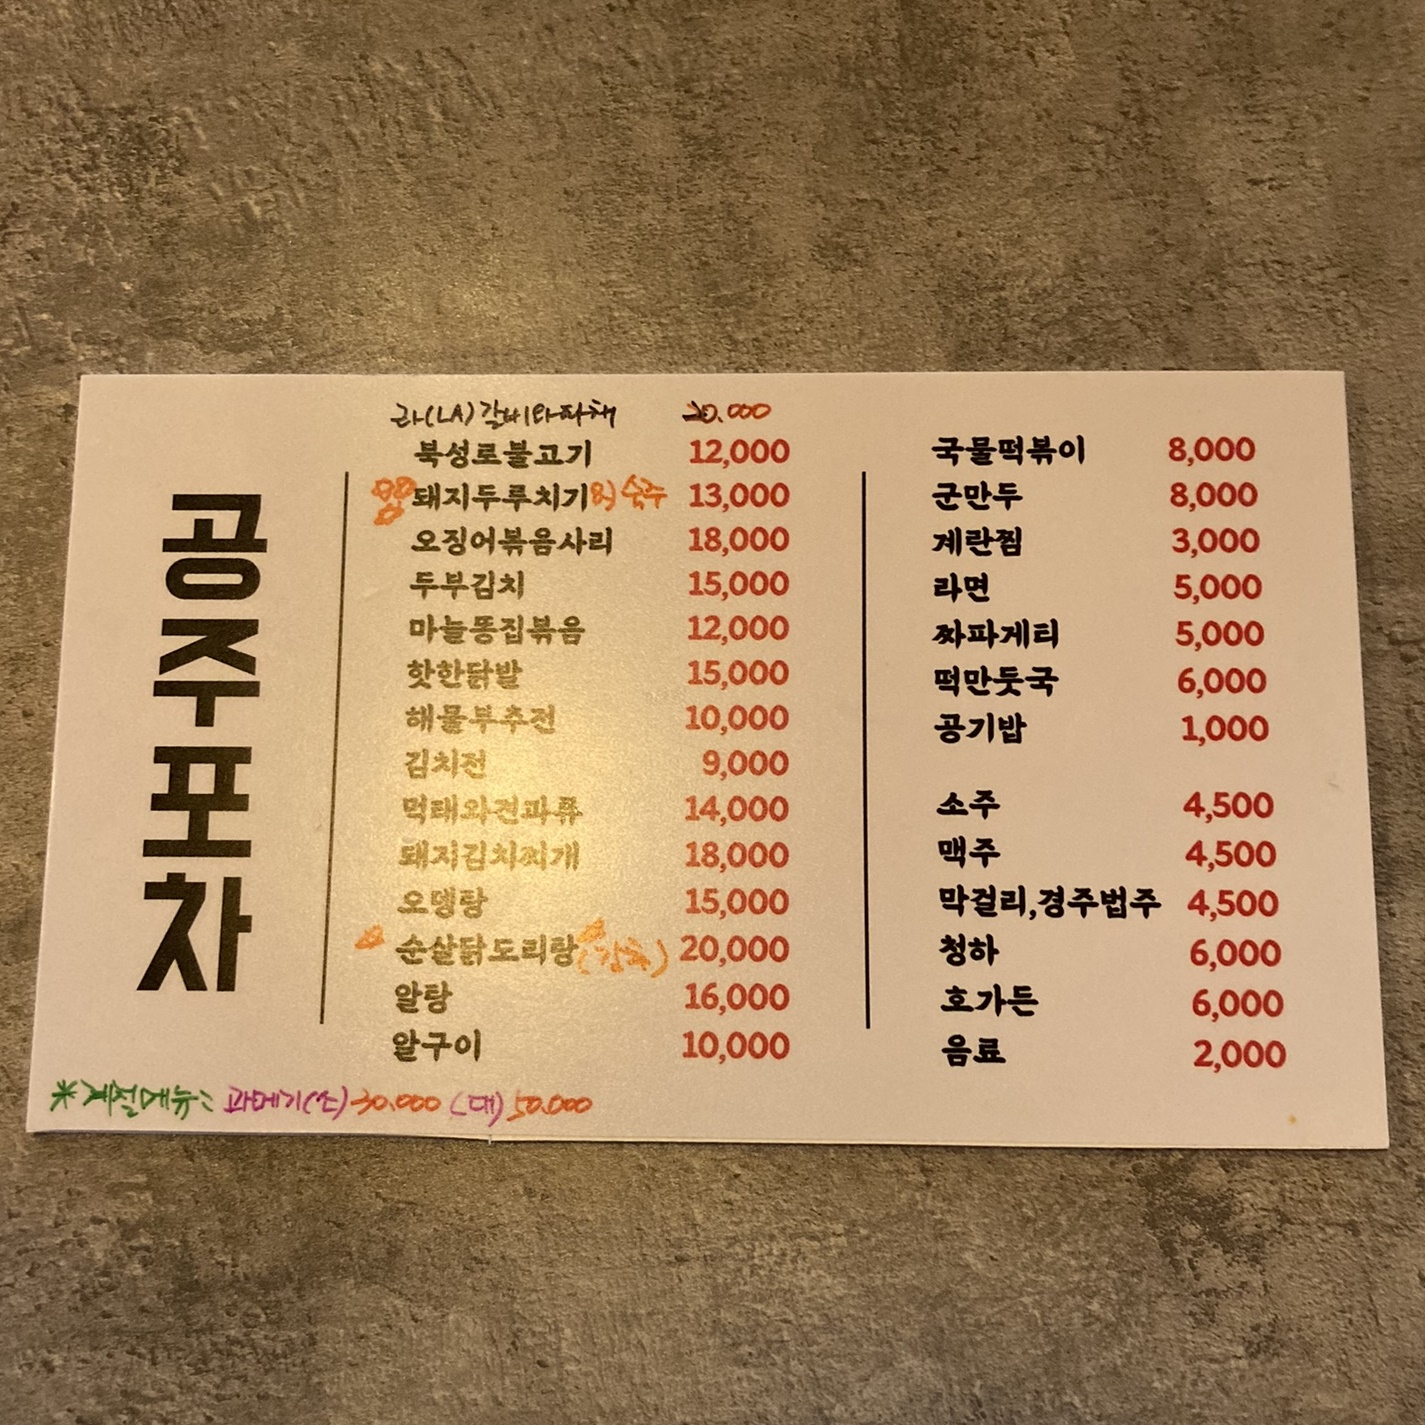 공주포차
라(LA)갈비와파채 20.000
북성로불고기 12,000
돼지두루치기와 숙주 13,000
오징어볶음사리 18,000
두부김치 15,000
마늘똥집볶음 12,000
핫한닭발 15,000
해물부추전 10,000
김치전 9,000
먹태와건파류 14,000
돼지김치찌개 18,000
오뎅탕 15,000
순살닭도리탕 20,000
알탕 16,000
알구이 10,000
국물떡볶이 8,000
군만두 8,000
계란찜 3,000
라면 5,000
짜파게티 5,000
떡만둣국 6,000
공기밥 1,000
소주 4,500
맥주 4,500
막걸리,경주법주 4,500
청하 6,000
호가든 6,000
음료 2,000
*계절메뉴: 과메기(소)30.000 (대)50.000